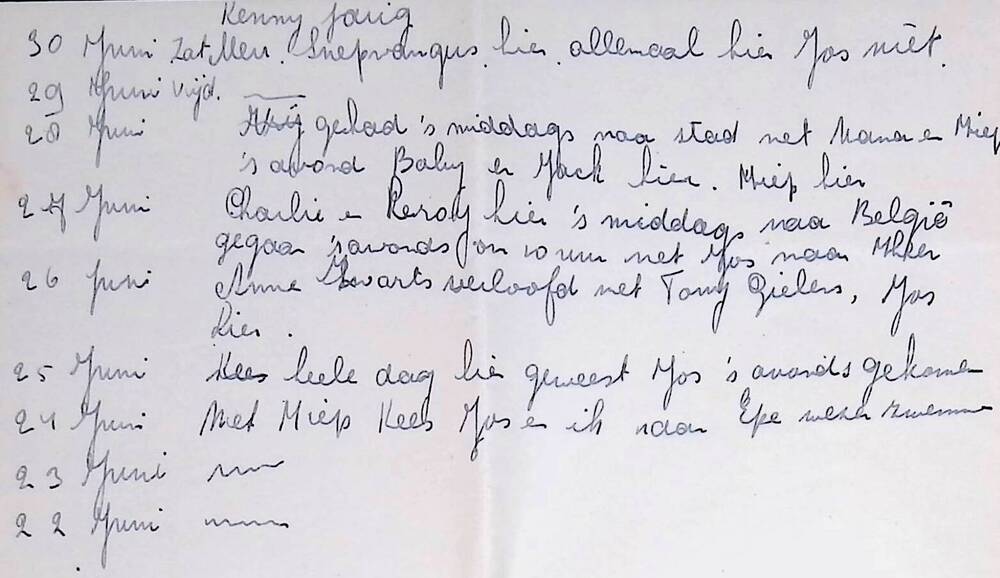 Kenny jarig
30 Juni Zat. Mev. Snepvangus hier. allemaal hier Jos niet.
29 Juni Vrijd.
28 Juni gehad 's middags naa stad met Mana en Miep
's avond Baby en Jack hier. Miep hier
27 Juni Charlie en hier 's middags naa België
gegaan 's avonds om 10 uur met Jos naar
26 Juni Anne Zwarts verloofd met Tony Gielens, Jos
hier.
25 Juni Kees heele dag hier geweest Jos 's avonds gekomen
24 Juni Met Miep Kees Jos en ik naar Epe wezen zwemmen
23 Juni
22 Juni